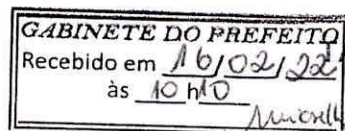 GABINETE DO PREFEITO
Recebido em 16/02/22
às 10 h10